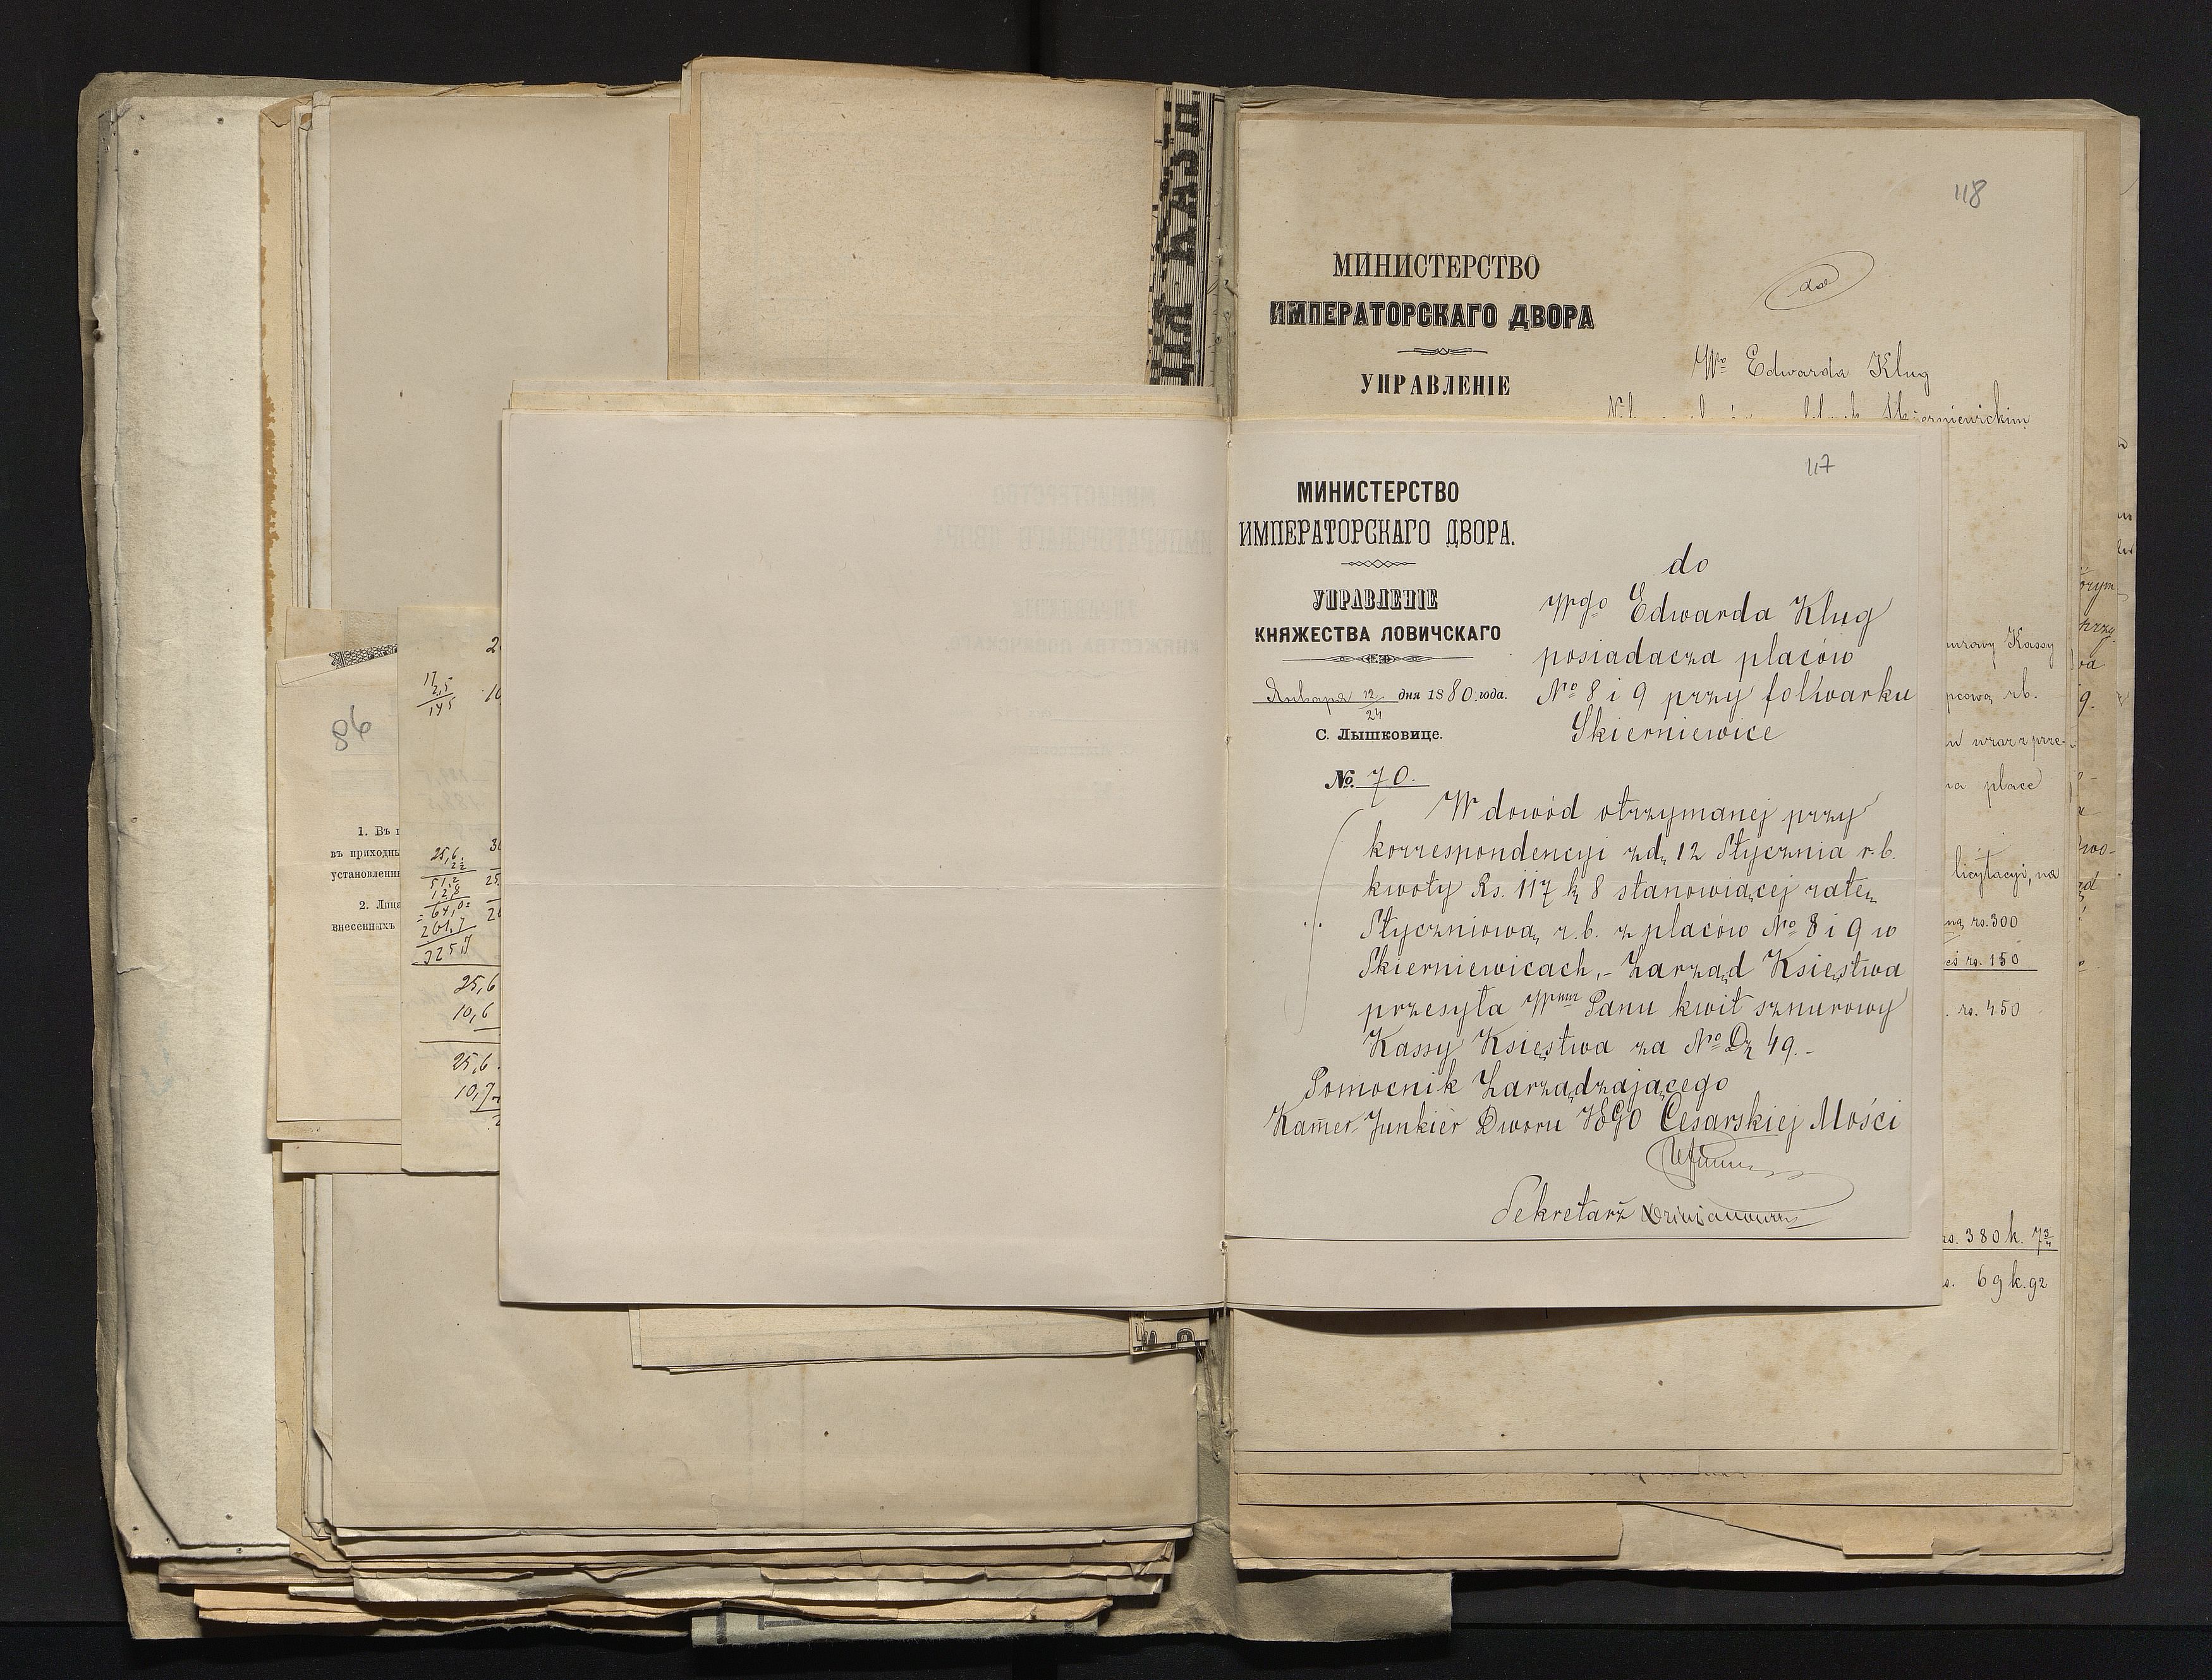 118
МИНИСТЕРСТВО
ИМПЕРАТОРСКАГО ДВОРА
УПРАВЛЕНІЕ
do
Wo Edwarda Klug
Skierniewickim
117
МИНИСТЕРСТВО
ИМПЕРАТОРСКАГО ДВОРА.
УПРАВЛЕНІЕ
КНЯЖЕСТВА ЛОВИЧСКАГО
Января 12/24 дня 1880 года.
С. Лышковице.
№ 70.
do
Wgo Edwarda Klug
posiadacza placów
No 8 i 9 przy folwarku
Skierniewice
W dowód otrzymanej przy
korrespondencyi zd. 12 Stycznia r.b.
kwoty Rs. 117 k 8 stanowiącej ratę
Styczniową r.b. z placów No 8 i 9 w
Skierniewicach, - Zarząd Księstwa
przesyła Wmu Panu kwit sznurowy
Kassy Księstwa za No Dz 49. -
Pomocnik Zarządzającego
Kamer-Junkier Dworu JEGO Cesarskiej Mości
Sekretarz
86
1. Въ
въ приходн
установленн
2. Лица
внесенныхъ
25,6
51,2
12,8
64,0
261,7
325,7
25,6
10,6
25,6
10,7
Kassy
rb.
wraz z prze-
na place
licytacyi, na
rs. 300
rs. 150
rs. 450
rs. 380 k. 7 3/4
69 k. 92